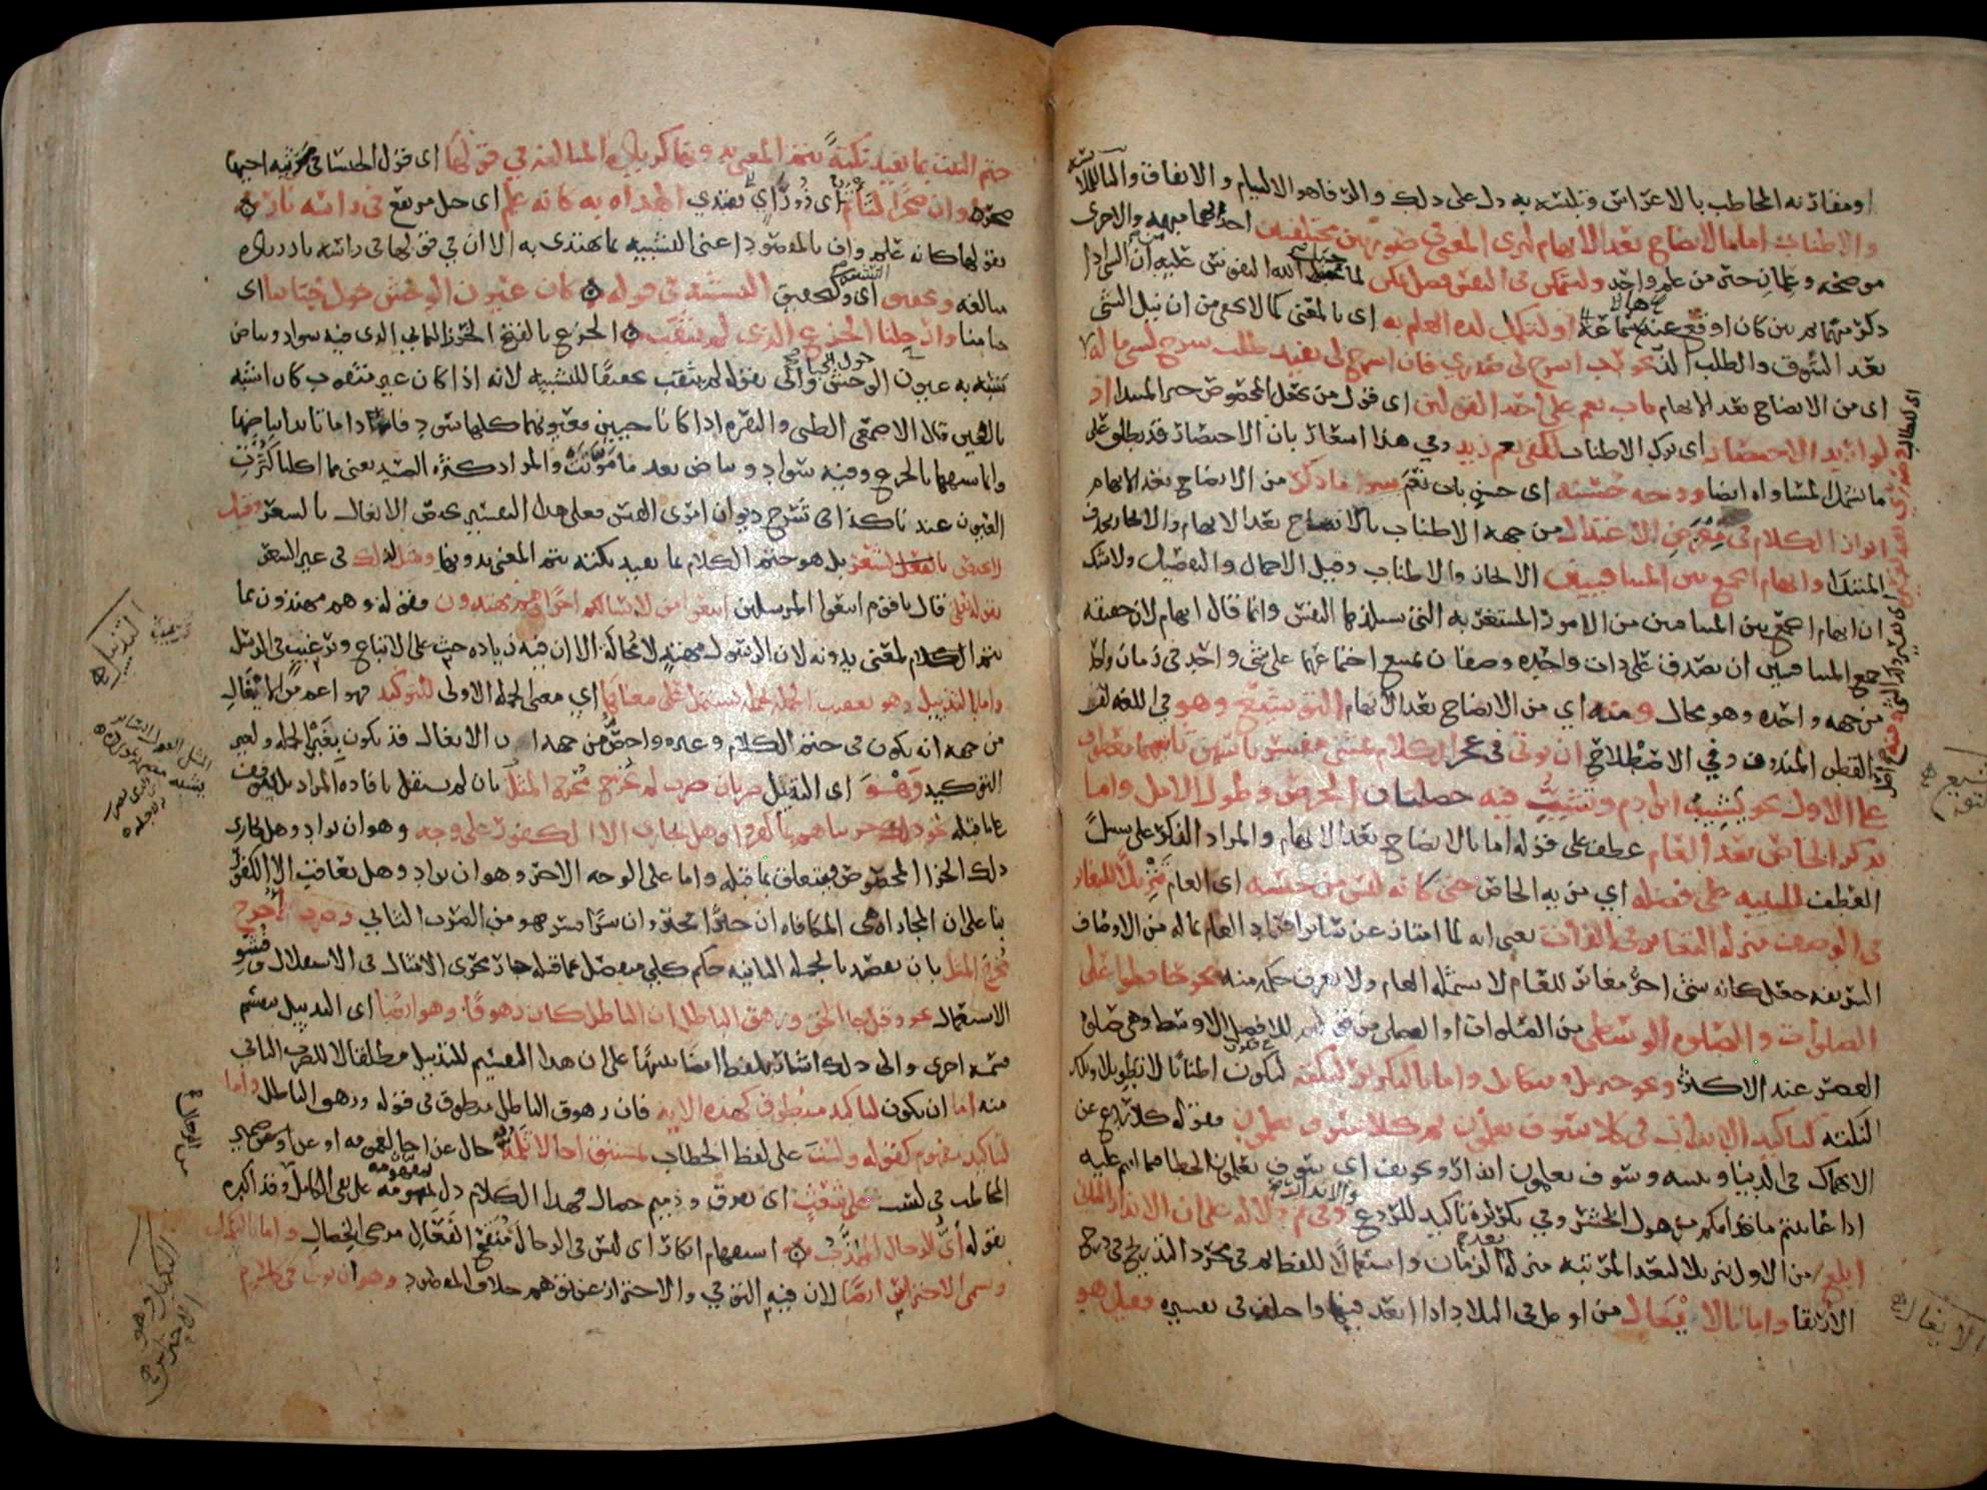 او مقارنه المخاطب بالاعراس وتلبسه به دل على ذلك والرفاهو الالتيام والاتفاق والبا للملابسة
والاطناب اما بالايضاح بعد الابهام ليرى المعنى في صورتين مختلفتين احديهما مبهمه والاخرى
موضحه وعلمان خير من علم واحد او ليتمكن في النفس فضل تمكن لما جبل الله النفوس عليه من ان الشي اذا
ذكر مبهما ثم بين كان اوقع عندها او لتكمل لذة العلم به اي بالمعنى كما لا يخفى من ان نيل الشي
بعد الشوق والطلب الذ نحو رب اشرح لي صدري فان اشرح لي يفيد طلب شرح لشي ما له
اي من الايضاح بعد الابهام باب نعم على احد القولين اي قول من يجعل المخصوص خبر المبتدا اذ
لو اريد الاختصار اي ترك الاطناب لكفى نعم زيد وفي هذا اشعار بان الاختصار قد يطلق على
ما يشمل المساواه ايضا ووجه حسنه اي حسن باب نعم سوى ما ذكر من الايضاح بعد الابهام
ابراز الكلام في معرض الاعتدال من جهه الاطناب بالايضاح بعد الابهام والايجاز بحذف
المبتدا وايهام الجمع بين المتنافيين الايجاز والاطناب وقيل الاجمال والتفصيل ولا شك
ان ايهام الجمع بين المتنافيين من الامور المستغربه التي تستلذها النفس وانما قال ايهام لان حقيقه
جمع المتنافيين ان يصدق على ذات واحده وصفان يمتنع اجتماعهما على شي واحد في زمان واحد
من جهه واحده وهو محال ومنه اي من الايضاح بعد الابهام التوشيع وهو في اللغه لف
القطن المندوف وفي الاصطلاح ان يوتى في عجز الكلام بمثنى مفسر باسمين ثانيهما معطوف
على الاول نحو يشيب ابن ادم وتشب فيه خصلتان الحرص وطول الامل واما
بذكر الخاص بعد العام عطف على قوله اما بالايضاح بعد الابهام والمراد الذكر على سبيل
العطف للتنبيه على فضله اي مزيه الخاص حتى كانه ليس من جنسه اي العام تنزيلا للتغاير
في الوصف منزله التغاير في الذات يعني انه لما امتاز عن سائر افراد العام بما له من الاوصاف
الشريفه جعل كانه شي اخر مغاير للعام لا يشمله العام ولا يعرف حكمه منه نحو حافظوا على
الصلوات والصلوه الوسطى من الصلوات او الفضلى من قولهم للافضل الاوسط وهي صلوه
العصر عند الاكثر ونحو جبريل وميكايل واما بالتكرير لنكته ليكون اطنابا لا تطويلا وتلك
النكته كتاكيد الانذار في كلا سوف تعلمون ثم كلا سوف تعلمون فقوله كلا ردع عن
الانهماك في الدنيا وتنبيه وسوف تعلمون انذار وتخويف اي سوف تعلمون الخطا فيما انتم عليه
اذا عاينتم ما قدامكم من هول المحشر وفي تكريره تاكيد للردع والانذار وفي ثم دلاله على ان الانذار الثاني
ابلغ من الاول تنزيلا لبعد المرتبه منزله بعد الزمان واستعمالا للفظ ثم في مجرد التدريج في درج
الارتقا واما بالايغال من اوغل في البلاد اذا ابعد فيها واختلف في تفسيره فقيل هو
اي للطالب
توشيع
الايغال
ختم البيت بما يفيد نكتة يتم المعنى بدونها كزيادة المبالغه في قولها اي قول الخنسا في مرثيه اخيها
صخر وان صخرا لتاتم اي تقتدي الهداه به كانه علم اي جبل مرتفع في راسه نار
فقولها كانه علم واف بالمقصود اعني التشبيه بما يهتدى به الا ان في قولها في راسه نار زياده
مبالغه وتحقيق اي وكتحقيق التشبيه في قوله كان عيون الوحش حول خبائنا اي
خيامنا وارحلنا الجزع الذي لم يثقب الجزع بالفتح الخرز اليماني الذي فيه سواد وبياض
شبه به عيون الوحش واتى بقوله لم يثقب تحقيقا للتشبيه لانه اذا كان غير مثقوب كان اشبه
بالعين قال الاصمعي الظبي والبقره اذا كانا حيين فعيونهما كلها سواد فاذا ماتا بدا بياضها
وانما شبهها بالجزع وفيه سواد وبياض بعد ما موتت والمراد كثره الصيد يعني مما اكلنا كثرت
العيون عندنا كذا في شرح ديوان امرئ القيس فعلى هذا التفسير يختص الايغال بالشعر وقيل
لا يختص بالشعر بل هو ختم الكلام بما يفيد نكته يتم المعنى بدونها ومثل لذلك في غير الشعر
بقوله تعالى قال يا قوم اتبعوا المرسلين اتبعوا من لا يسالكم اجرا وهم مهتدون فقوله وهم مهتدون مما
يتم الكلام المعنى بدونه لان الرسول مهتد لا محاله الا ان فيه زياده حث على الاتباع وترغيب في الرسل
واما بالتذييل وهو تعقيب الجمله بجمله تشتمل على معناها اي معنى الجمله الاولى للتوكيد فهو اعم من الايغال
من جهه انه يكون في ختم الكلام وغيره واخص من جهه ان الايغال قد يكون بغير الجمله ولغير
التوكيد وهو اي التذييل ضربان ضرب لم يخرج مخرج المثل بان لم يستقل بافاده المراد بل يتوقف
على ما قبله نحو ذلك جزيناهم بما كفروا وهل نجازي الا الكفور على وجه وهو ان يراد وهل نجازي
ذلك الجزا المخصوص فيتعلق بما قبله واما على الوجه الاخر وهو ان يراد وهل نعاقب الا الكفور
بنا على ان المجازاه هي المكافاه ان خيرا فخير وان شرا فشر فهو من الضرب الثاني وضرب اخرج
مخرج المثل بان يقصد بالجمله الثانيه حكم كلي منفصل عما قبله جار مجرى الامثال في الاستقلال وفشو
الاستعمال نحو وقل جا الحق وزهق الباطل ان الباطل كان زهوقا وهو ايضا اي التذييل ينقسم
قسمه اخرى واتى بلفظ ايضا تنبيها على ان هذا التقسيم للتذييل مطلقا لا للضرب الثاني
منه اما ان يكون لتاكيد منطوق كهذه الايه فان زهوق الباطل منطوق في قوله وزهق الباطل واما
لتاكيد مفهوم كقوله ولست على لفظ الخطاب بمستبق اخا لا تلمه حال عن اخا لعمومه او عن ضمير
المخاطب في لست على شعث اي تفرق وذميم خصال فهذا الكلام دل بمفهومه على نفي الكامل وقد اكده
بقوله اي الرجال المهذب استفهام انكار اي ليس في الرجال منقح الفعال مرضي الخصال واما بالتكميل
ويسمى الاحتراس ايضا لان فيه التوقي والاحتراز عن توهم خلاف المقصود وهو ان يوتى في كلام
التذييل
التكميل وهو الاحتراس